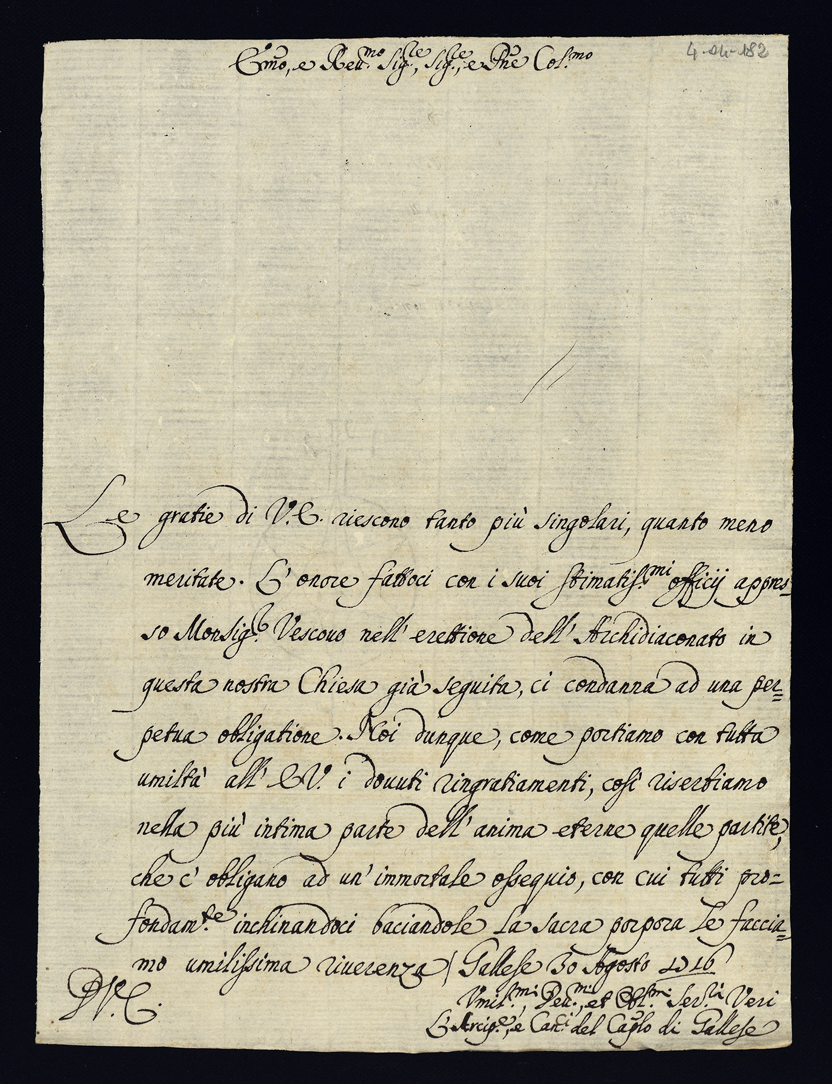 Em̃o, e Reu.mo Sig.re, Sig.re, e Pñe Col.mo
Le gratie di V.E. riescono tanto più singolari, quanto meno
meritate. L'onore fattoci con i suoi stimatiss.mi officij appres=
so Monsig.r Vescouo nell'erettione dell'Archidiaconato in
questa nostra Chiesa già seguita, ci condanna ad una per=
petua obligatione. Noi dunque, come portiamo con tutta
umiltà all'E.V. i douuti ringratiamenti, così riserbiamo
nella più intima parte dell'anima eterne quelle partite,
che c'obligano ad un'immortale ossequio, con cui tutti pro=
fondam.te inchinandoci baciandole la sacra porpora le faccia=
mo umilissima riuerenza / Gallese 30 Agosto 1716
D.V.E.
Vmil.mi, Deu.mi, et Obl.mi Ser.ri Veri
L'Arcip.e, e Can.i del Cap̃lo di Gallese